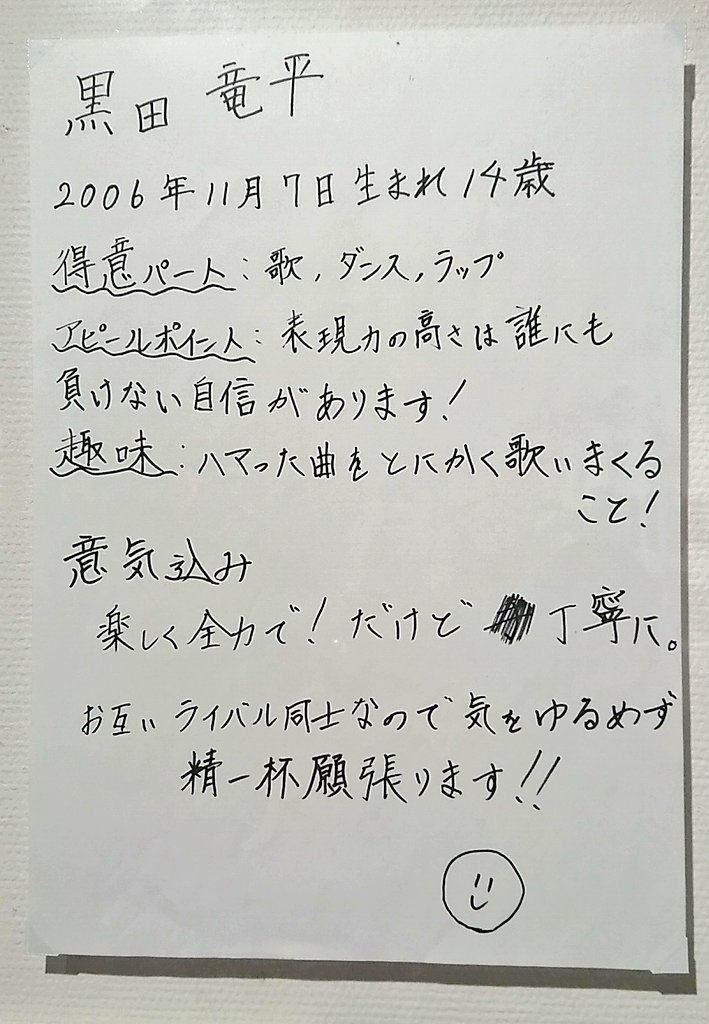 黒田 竜平
2006年11月7日生まれ14歳
得意パート：歌，ダンス，ラップ
アピールポイント：表現力の高さは誰にも
負けない自信があります！
趣味：ハマった曲をとにかく歌いまくる
こと！
意気込み
楽しく全力で！だけど 丁寧に。
お互いライバル同士なので気をゆるめず
精一杯願張ります！！